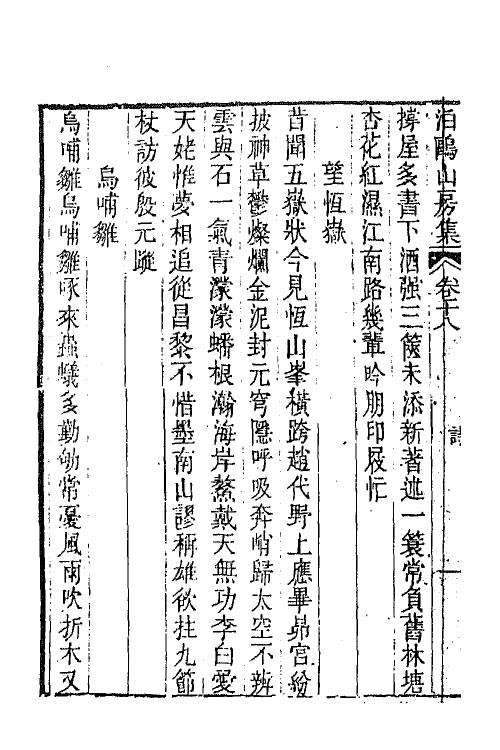 泊鷗山房集 卷十八 詩 一
撐屋多書下酒强三篋未添新著述一簑常負舊林塘
杏花紅濕江南路幾輩吟朋印屐忙
望恆嶽
昔聞五嶽狀今見恆山峯橫跨趙代野上應畢昴宮紛
披神草鬱燦爛金泥封元穹隱呼吸奔峭歸太空不辨
雲與石一氣青濛濛蟠根瀚海岸鰲戴天無功李白愛
天姥惟夢相追從昌黎不惜墨南山謬稱雄欲拄九節
杖訪彼殷元蹤
烏哺雛
烏哺雛烏哺雛啄來蟲蟻多勤劬常憂風雨吹折木又